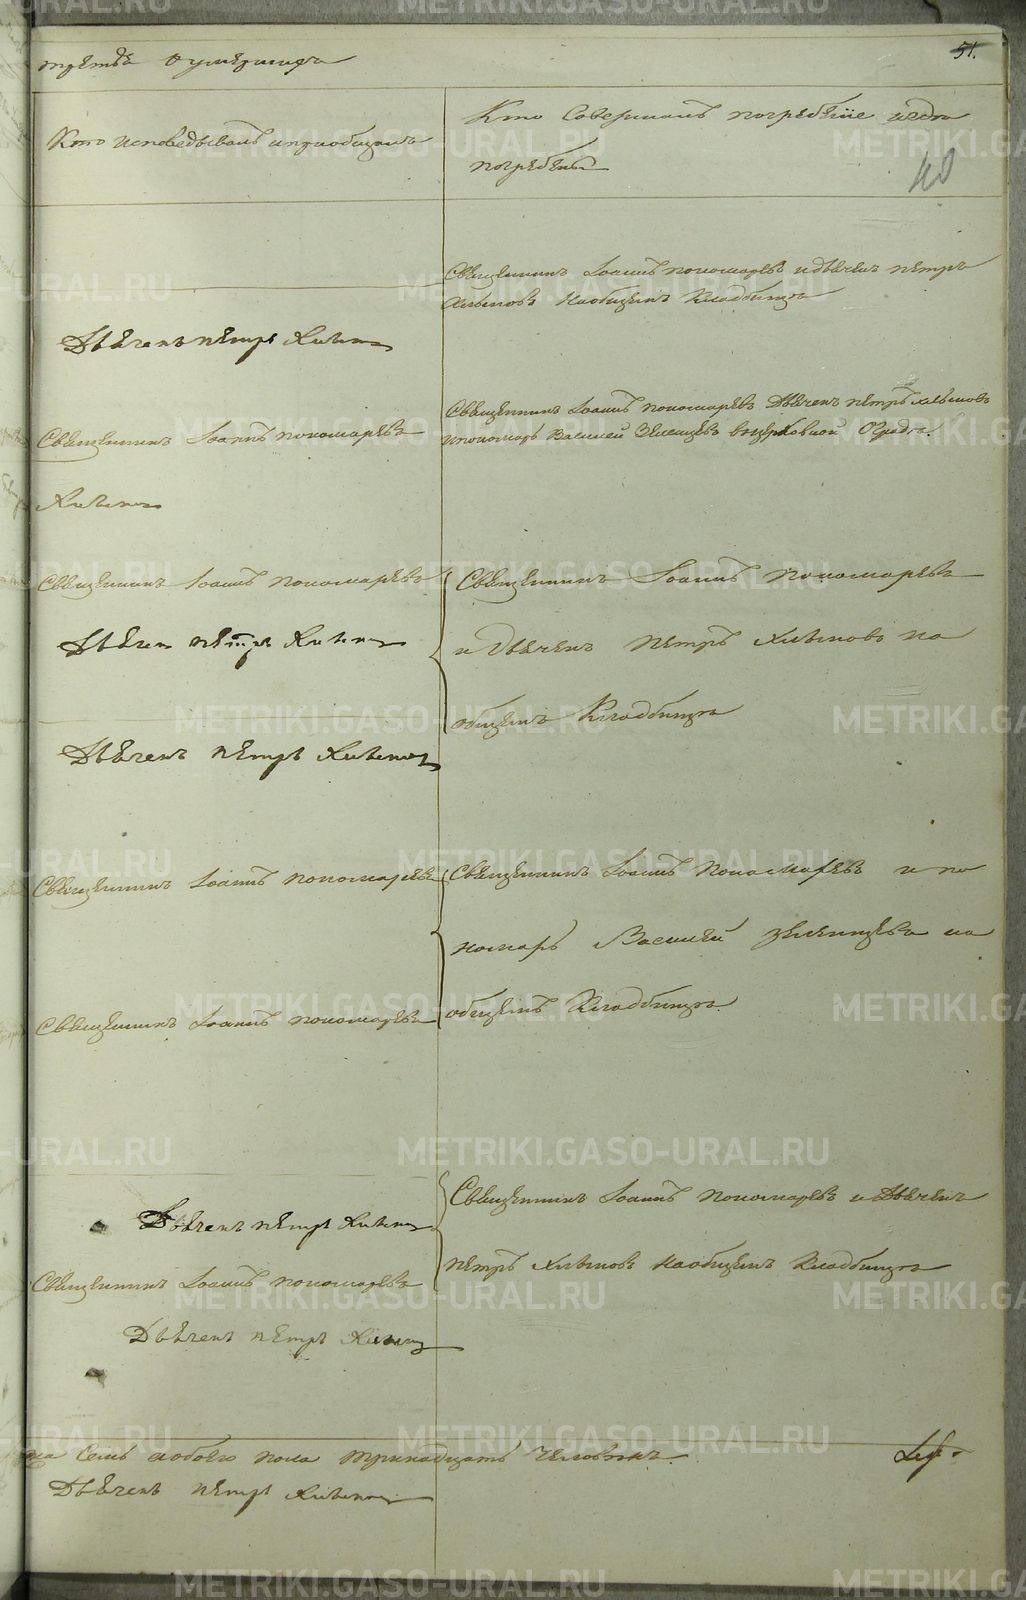 третья о умершихъ
51.
Кто исповедывалъ и приобщалъ
Кто Совершалъ погребенiе и где
погребены
40
Священникъ Iоаннъ пономаревъ и дьячекъ петръ
Хлыновъ на общемъ Кладбище
Дьячекъ петръ Хлыновъ
Священникъ Iоаннъ пономаревъ Дьячекъ петръ хлыновъ
и пономарь Василей Зеленцовъ в церковной Ограде.
Священникъ Iоаннъ пономаревъ
Хлыновъ
Священникъ Iоаннъ пономаревъ
Дьячек петръ Хлыновъ
Дьячекъ петръ Хлыновъ
Священникъ Iоаннъ пономаревъ
и дьячекъ петръ хлыновъ на
общемъ Кладбище
Священникъ Iоаннъ пономаревъ
Священникъ Iоаннъ пономаревъ
Священникъ Iоаннъ пономаревъ и по
номарь Василей зеленцовъ на
общемъ Кладбище.
Дьячекъ петръ Хлыновъ
Священникъ Iоаннъ пономаревъ
Дьячекъ петръ Хлыновъ
Священникъ Iоаннъ пономаревъ и Дьячекъ
петръ хлыновъ на общемъ Кладбище
ка Семь а обоего пола тринадцать человекъ
Дьячекъ петръ Хлыновъ
METRIKI.GASO-URAL.RU